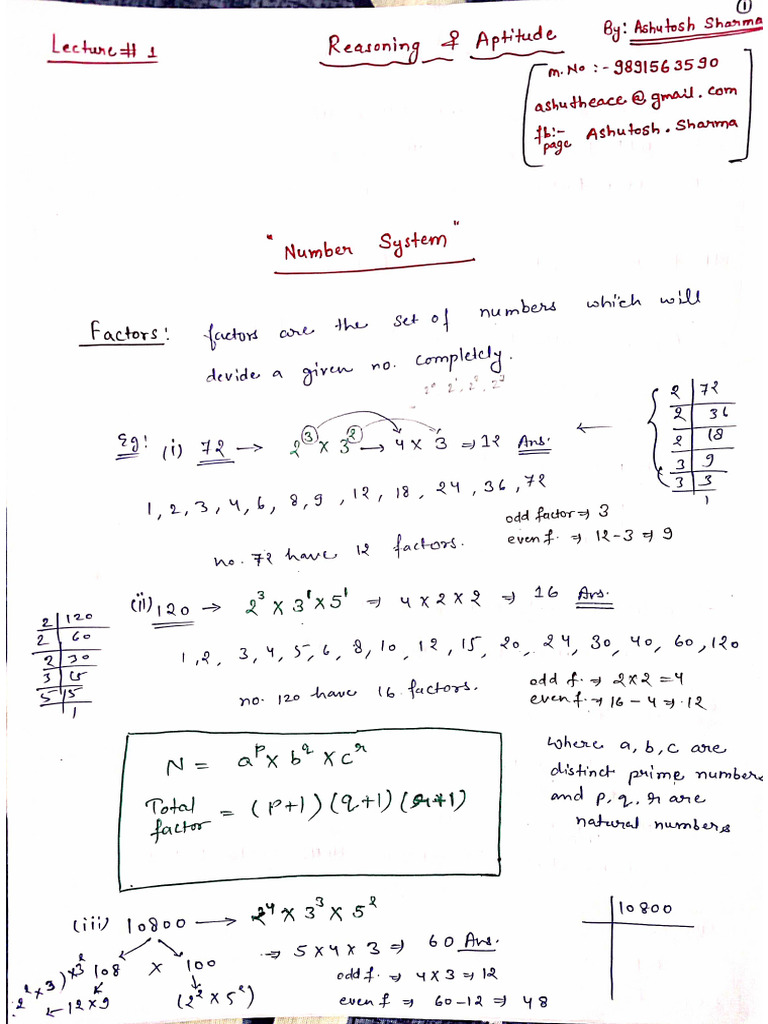 ①
Lecture # 1
Reasoning & Aptitude
By: Ashutosh Sharma
m.No :- 9891563590
ashutheace@gmail.com
fb:- page Ashutosh.Sharma
"Number System"
Factors: factors are the set of numbers which will
devide a given no. completely.
2⁰ 2¹, 2², 2³
Eg: (i) 72 → 2³ × 3² → 4 × 3 ⇒ 12 Ans. ←
2 | 72
2 | 36
2 | 18
3 | 9
3 | 3
1
1, 2, 3, 4, 6, 8, 9, 12, 18, 24, 36, 72
odd factor ⇒ 3
even f. ⇒ 12-3 ⇒ 9
no. 72 have 12 factors.
(ii) 120 → 2³ × 3¹ × 5¹ ⇒ 4 × 2 × 2 ⇒ 16 Ans.
2 | 120
2 | 60
2 | 30
3 | 15
5 | 5
1
1, 2, 3, 4, 5, 6, 8, 10, 12, 15, 20, 24, 30, 40, 60, 120
no. 120 have 16 factors.
odd f. ⇒ 2 × 2 = 4
even f. ⇒ 16 - 4 ⇒ 12
N = aᵖ × b^q × cʳ
Total factor = (p+1) (q+1) (r+1)
where a, b, c are
distinct prime numbers
and p, q, r are
natural numbers
(iii) 10800 → 2⁴ × 3³ × 5²
10800
⇒ 5 × 4 × 3 ⇒ 60 Ans.
108 × 100
odd f. ⇒ 4 × 3 ⇒ 12
2² × 3) × 3² ← 12 × 9
(2² × 5²)
even f ⇒ 60 - 12 ⇒ 48